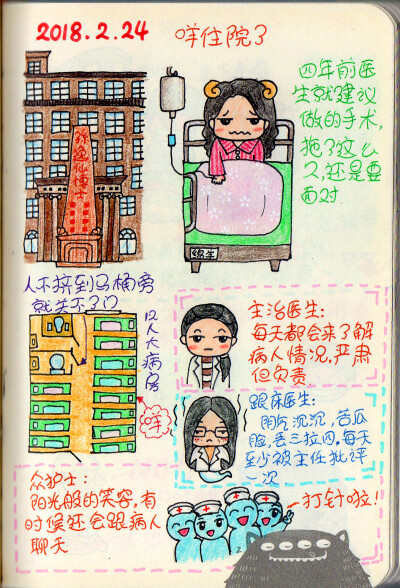 2018.2.24
咩住院了
四年前医
生就建议
做的手术,
拖了这么
久,还是要
面对.
孙逸仙博士
人不挤到马桶旁
就关不了门
12人大
病房
咩
主治医生:
每天都会来了解
病人情况,严肃
但负责.
跟床医生:
阴气沉沉,苦瓜
脸,丢三拉四,每天
至少被主任批评
一次
众护士:
阳光般的笑容,有
时候还会跟病人
聊天
打针啦!